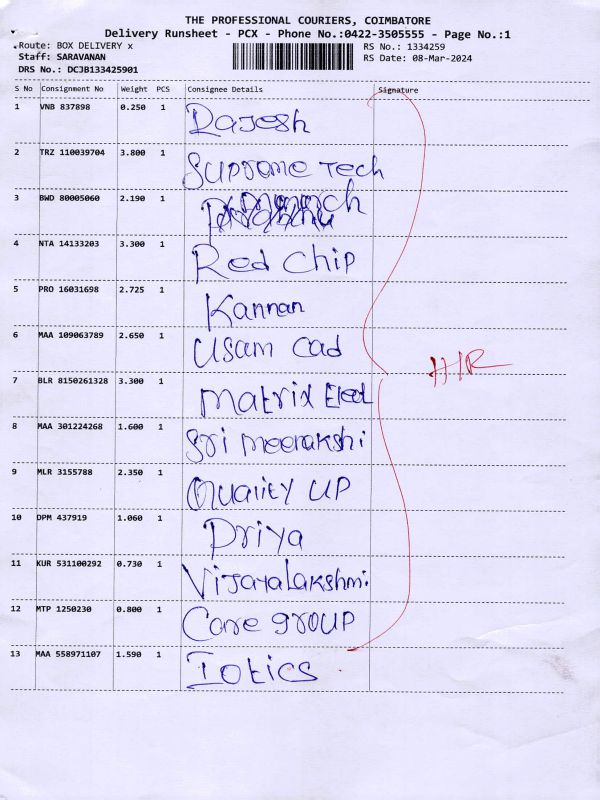 THE PROFESSIONAL COURIERS, COIMBATORE
Delivery Runsheet - PCX - Phone No.:0422-3505555 - Page No.:1
Route: BOX DELIVERY x
RS No.: 1334259
Staff: SARAVANAN
RS Date: 08-Mar-2024
DRS No.: DCJB133425901
S No Consignment No Weight PCS Consignee Details Signature
1 VNB 837898 0.250 1 Rajesh
2 TRZ 110039704 3.800 1 Supreme Tech
3 BWD 80005060 2.190 1
4 NTA 14133203 3.300 1 Red Chip
5 PRO 16031698 2.725 1 Kannan
6 MAA 109063789 2.650 1 Usam Cad
7 BLR 8150261328 3.300 1 Matrix Eled
H/R
8 MAA 301224268 1.600 1 Sri meenakshi
9 MLR 3155788 2.350 1 Quality UP
10 DPM 437919 1.060 1 Priya
11 KUR 531100292 0.730 1 Vijayalakshmi.
12 MTP 1250230 0.800 1 Care group
13 MAA 558971107 1.590 1 Iotics